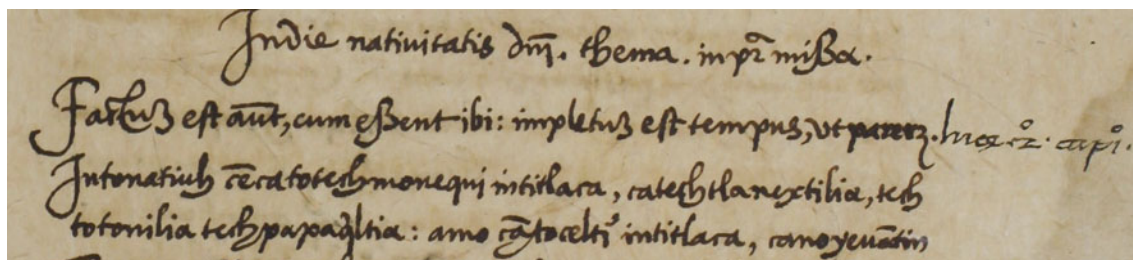 Indie nativitatis dñi. thema. in pr̃ missa.
Factuȝ est aũt, cum essent ibi: impletuȝ est tempus, ut pareret. luce. 2º. capi.º
Intonatiuh cẽca totech monequi intitlaca, catechtlanextilia, tech
totonilia techpapaq̃ltia: amo çãtoceltiº intitlaca, canoyeuãtin